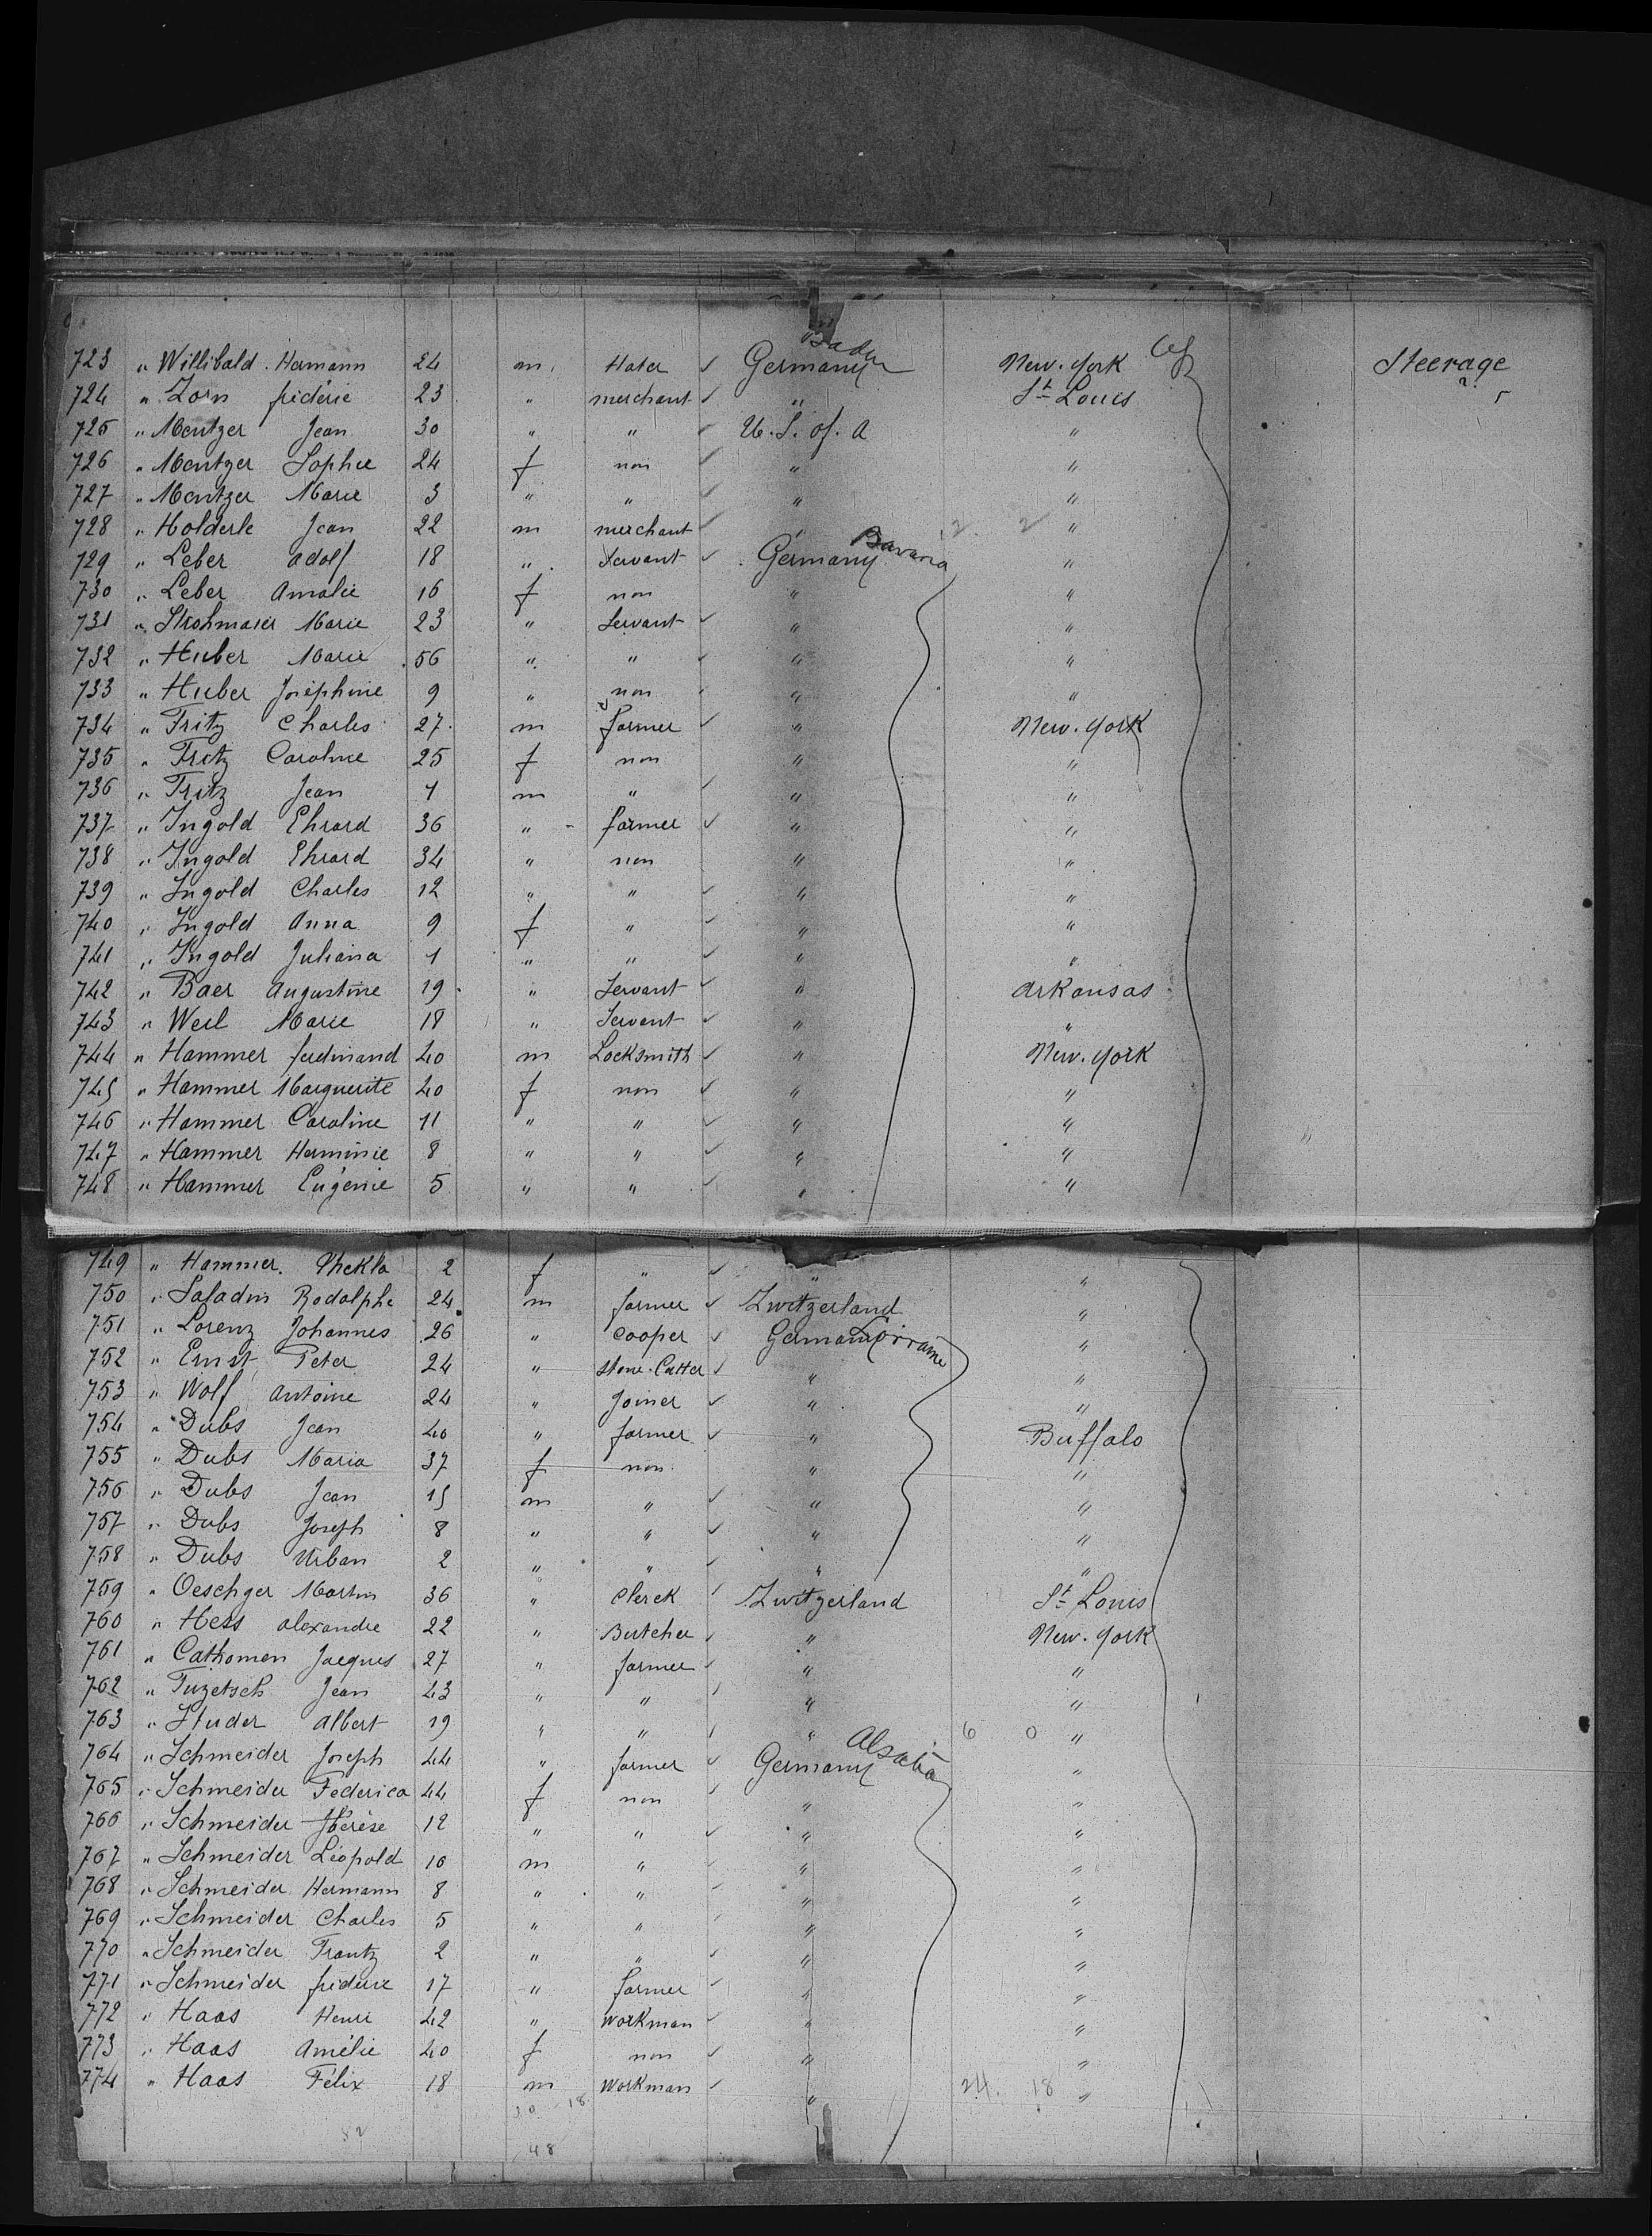 Baden
723 " Willibald Hermann 24 m Hater ✓ Germany New-York Steerage
724 " Zorn fréderic 23 " merchant ✓ " St Louis
725 " Mentzer Jean 30 " " ✓ U. S. of. A "
726 " Mentzer Sophie 24 f non ✓ " "
727 " Mentzer Marie 3 " " ✓ " "
728 " Holderle Jean 22 m merchant ✓ " 2 2 "
729 " Leber adolf 18 " Servant ✓ Germany Bavaria "
730 " Leber Amalie 16 f non " "
731 " Strohmaier Marie 23 " Servant ✓ " "
732 " Huber Marie 56 " " ✓ " "
733 " Huber Joséphine 9 " non ✓ " "
734 " Fritz Charles 27 m farmer ✓ " New-York
735 " Fritz Caroline 25 f non " "
736 " Fritz Jean 1 m " ✓ " "
737 " Ingold Ehrard 36 " farmer ✓ " "
738 " Ingold Ehrard 34 " non " "
739 " Ingold Charles 12 " " ✓ " "
740 " Ingold Anna 9 f " ✓ " "
741 " Ingold Juliana 1 " " ✓ " "
742 " Baer Augustine 19 " Servant ✓ " Arkansas
743 " Weil Marie 18 " Servant ✓ " "
744 " Hammer ferdinand 40 m Locksmith ✓ " New-York
745 " Hammer Marguerite 40 f non ✓ " "
746 " Hammer Caroline 11 " " ✓ " "
747 " Hammer Herminie 8 " " ✓ " "
748 " Hammer Eugénie 5 " " ✓ " "
749 " Hammer Thekla 2 f " ✓ " "
750 " Saladin Rodolphe 24 m farmer ✓ Zwitzerland "
751 " Lorenz Johannes 26 " Cooper ✓ Germany Lorraine "
752 " Ernst Peter 24 " Stone-Cutter ✓ " "
753 " Wolf Antoine 24 " Joiner ✓ " "
754 " Dubs Jean 40 " farmer ✓ " Buffalo
755 " Dubs Maria 37 f non " "
756 " Dubs Jean 15 m " ✓ " "
757 " Dubs Joseph 8 " " ✓ " "
758 " Dubs Urban 2 " " ✓ " "
759 " Oeschger Martin 36 " Clerck ✓ Zwitzerland St Louis
760 " Hess alexandre 22 " Butcher ✓ " New-York
761 " Cathomen Jacques 27 " farmer ✓ " "
762 " Tuzetsch Jean 43 " " ✓ " "
763 " Studer Albert 19 " " ✓ " 6 0 "
764 " Schmeider Joseph 44 " farmer ✓ Germany Alsatia "
765 " Schmeider Féderica 44 f non ✓ " "
766 " Schmeider Thérèse 12 " " ✓ " "
767 " Schmeider Léopold 10 m " ✓ " "
768 " Schmeider Hermann 8 " " ✓ " "
769 " Schmeider Charles 5 " " ✓ " "
770 " Schmeider Frantz 2 " " ✓ " "
771 " Schmeider fréderic 17 " farmer ✓ " "
772 " Haas Henri 42 " workman ✓ " "
773 " Haas Amélie 40 f non ✓ " "
774 " Haas Félix 18 m workman ✓ " 24. 18 "
30 18
52 48